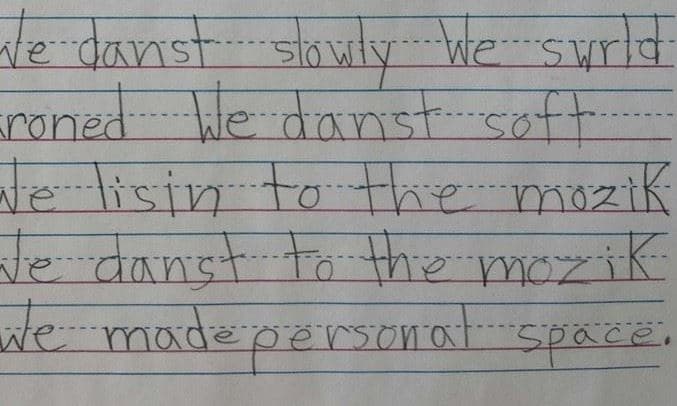 We danst slowly We swrld
roned We danst soft
We lisin to the mozik
We danst to the mozik
We made personal space.